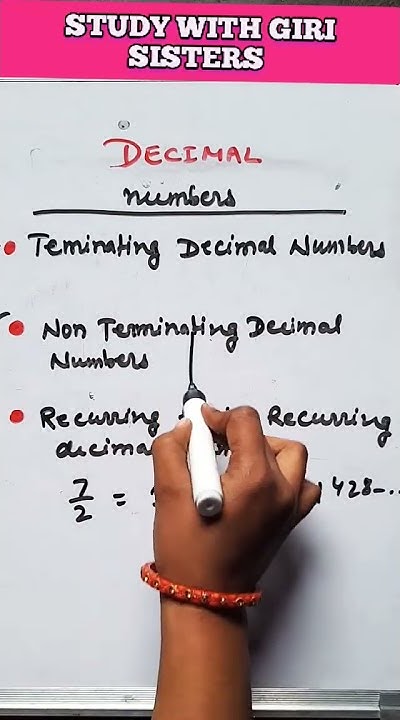 STUDY WITH GIRI
SISTERS
DECIMAL
numbers
Teminating Decimal Numbers
Non Terminating Decimal
Numbers
Recurring Recurring
decimal
7/2 = 428-...